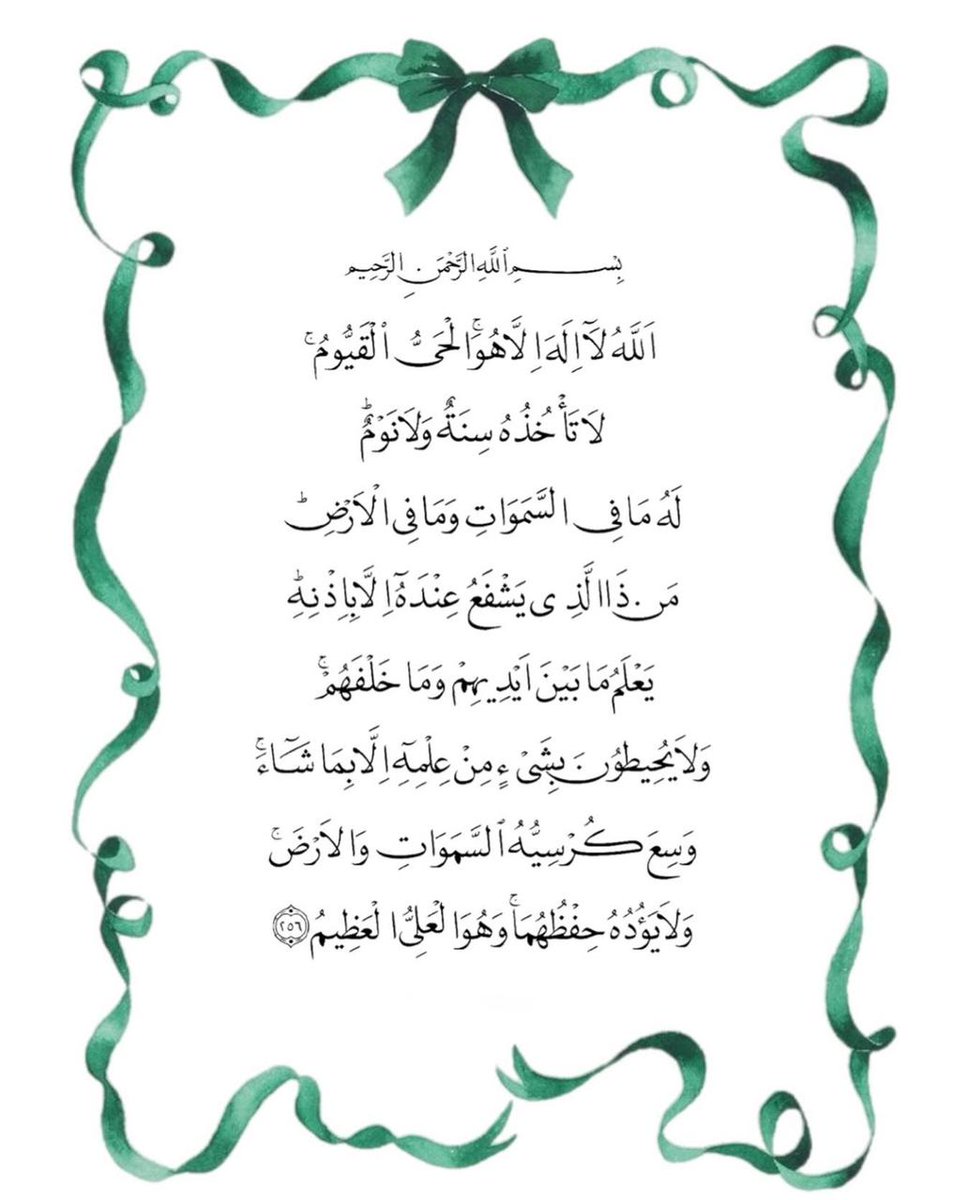 بِسْمِ ٱللَّهِ الرَّحْمَنِ الرَّحِيمِ
اَللَّهُ لَآ اِلَهَ اِلَّا هُوَۚ اَلْحَىُّ ٱلْقَيُّومُۚ
لَا تَأْخُذُهُ سِنَةٌ وَلَا نَوْمٌؕ
لَهُ مَا فِى السَّمَوَاتِ وَمَا فِى الْاَرْضِؕ
مَن ذَا الَّذِى يَشْفَعُ عِنْدَهُٓ اِلَّا بِاِذْنِهِؕ
يَعْلَمُ مَا بَيْنَ اَيْدِيهِمْ وَمَا خَلْفَهُمْۚ
وَلَا يُحِيطُونَ بِشَىْءٍ مِنْ عِلْمِهِٓ اِلَّا بِمَا شَٓاءَۚ
وَسِعَ كُرْسِيُّهُ ٱلسَّمَوَاتِ وَالْاَرْضَۚ
وَلَا يَؤُدُهُ حِفْظُهُمَاۚ وَهُوَ الْعَلِىُّ الْعَظِيمُ ﴿٢٥٦﴾